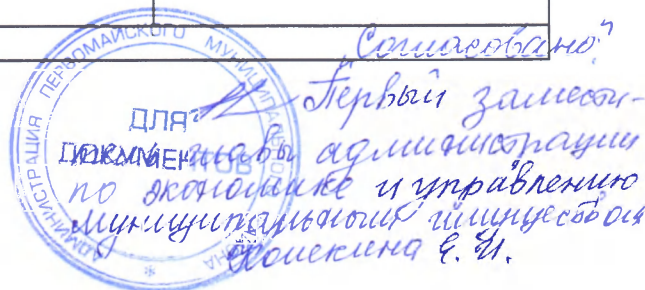 "Согласовано"
Первый замести-
тель главы администрации
по экономике и управлению
муниципальным имуществом
Е. И.
АДМИНИСТРАЦИЯ ПЕРВОМАЙСКОГО МУНИЦИПАЛЬНОГО
ДЛЯ
ДОКУМЕНТОВ